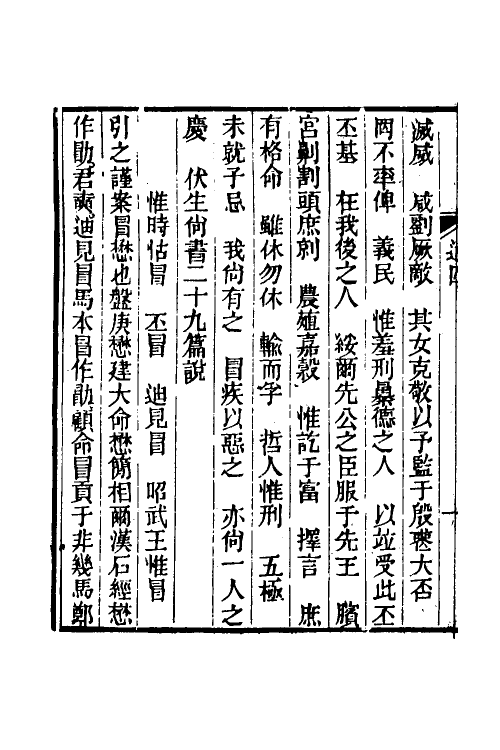 滅威　咸劉厥敵　其女克敬以予監于殷喪大否
罔不率俾　義民　惟羞刑暴德之人　以竝受此丕
丕基　在我後之人　綏爾先公之臣服于先王　臏
宮劓割頭庶剠　農殖嘉穀　惟訖于富　擇言　庶
有格命　雖休勿休　輸而孚　哲人惟刑　五極
未就予忌　我尚有之　冒疾以惡之　亦尚一人之
慶　伏生尚書二十九篇說
惟時怙冒　丕冒　迪見冒　昭武王惟冒
引之謹案冒懋也盤庚懋建大命懋簡相爾漢石經懋
作勖君奭迪見冒馬本冒作勖顧命冒貢于非幾馬鄭